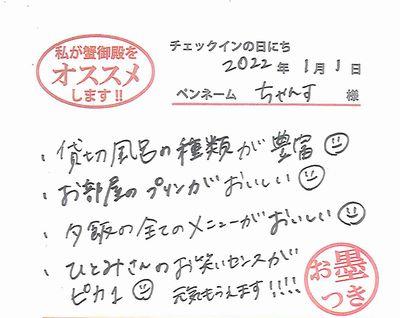 私が蟹御殿を
オススメ
します!!
チェックインの日にち
2022年 1月 1日
ペンネーム ちゃんす 様
・貸切風呂の種類が豊富
・お部屋のプリンがおいしい
・夕飯の全てのメニューがおいしい
・ひとみさんのお笑いセンスが
ピカ1 元気もらえます!!!!
お墨
つき